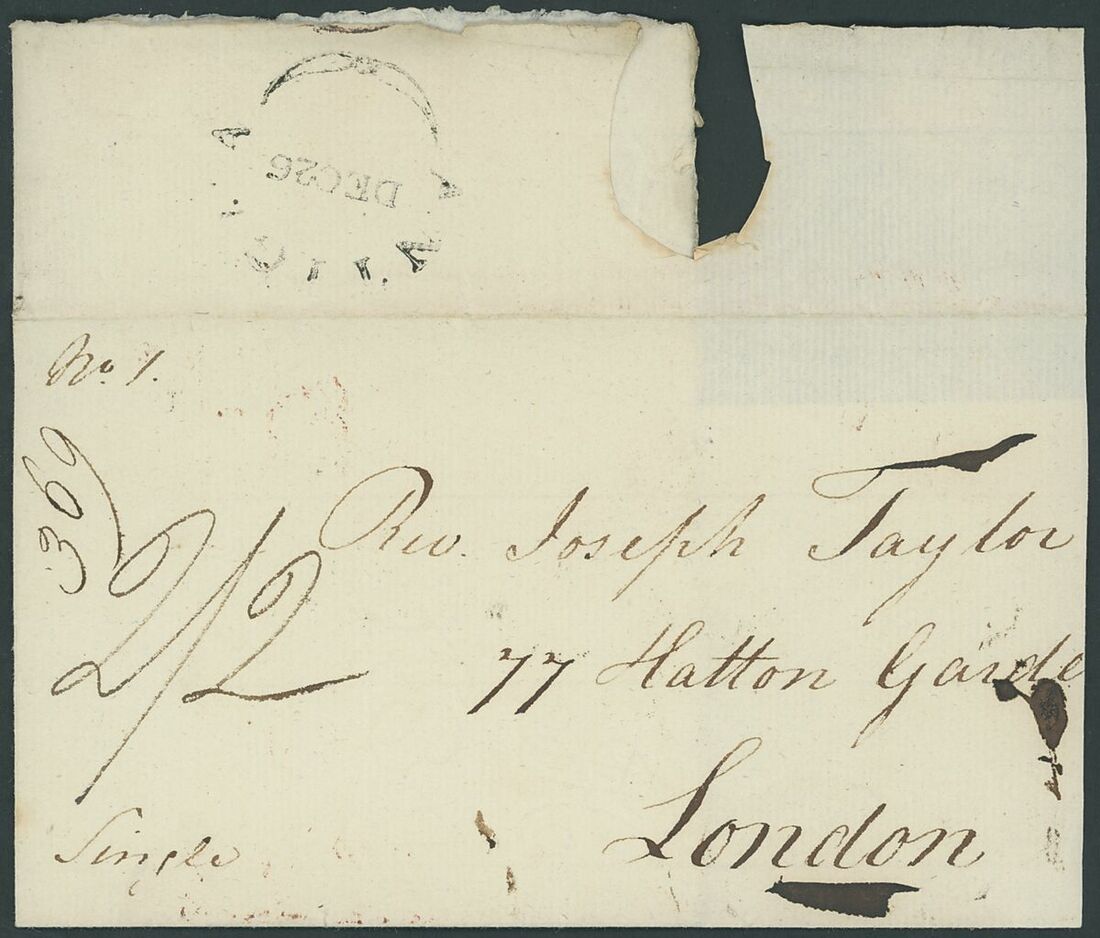 ANTIGUA
DEC26
No. 1.
369
2/2
Rev. Joseph Taylor
77 Hatton Garde
London
Single